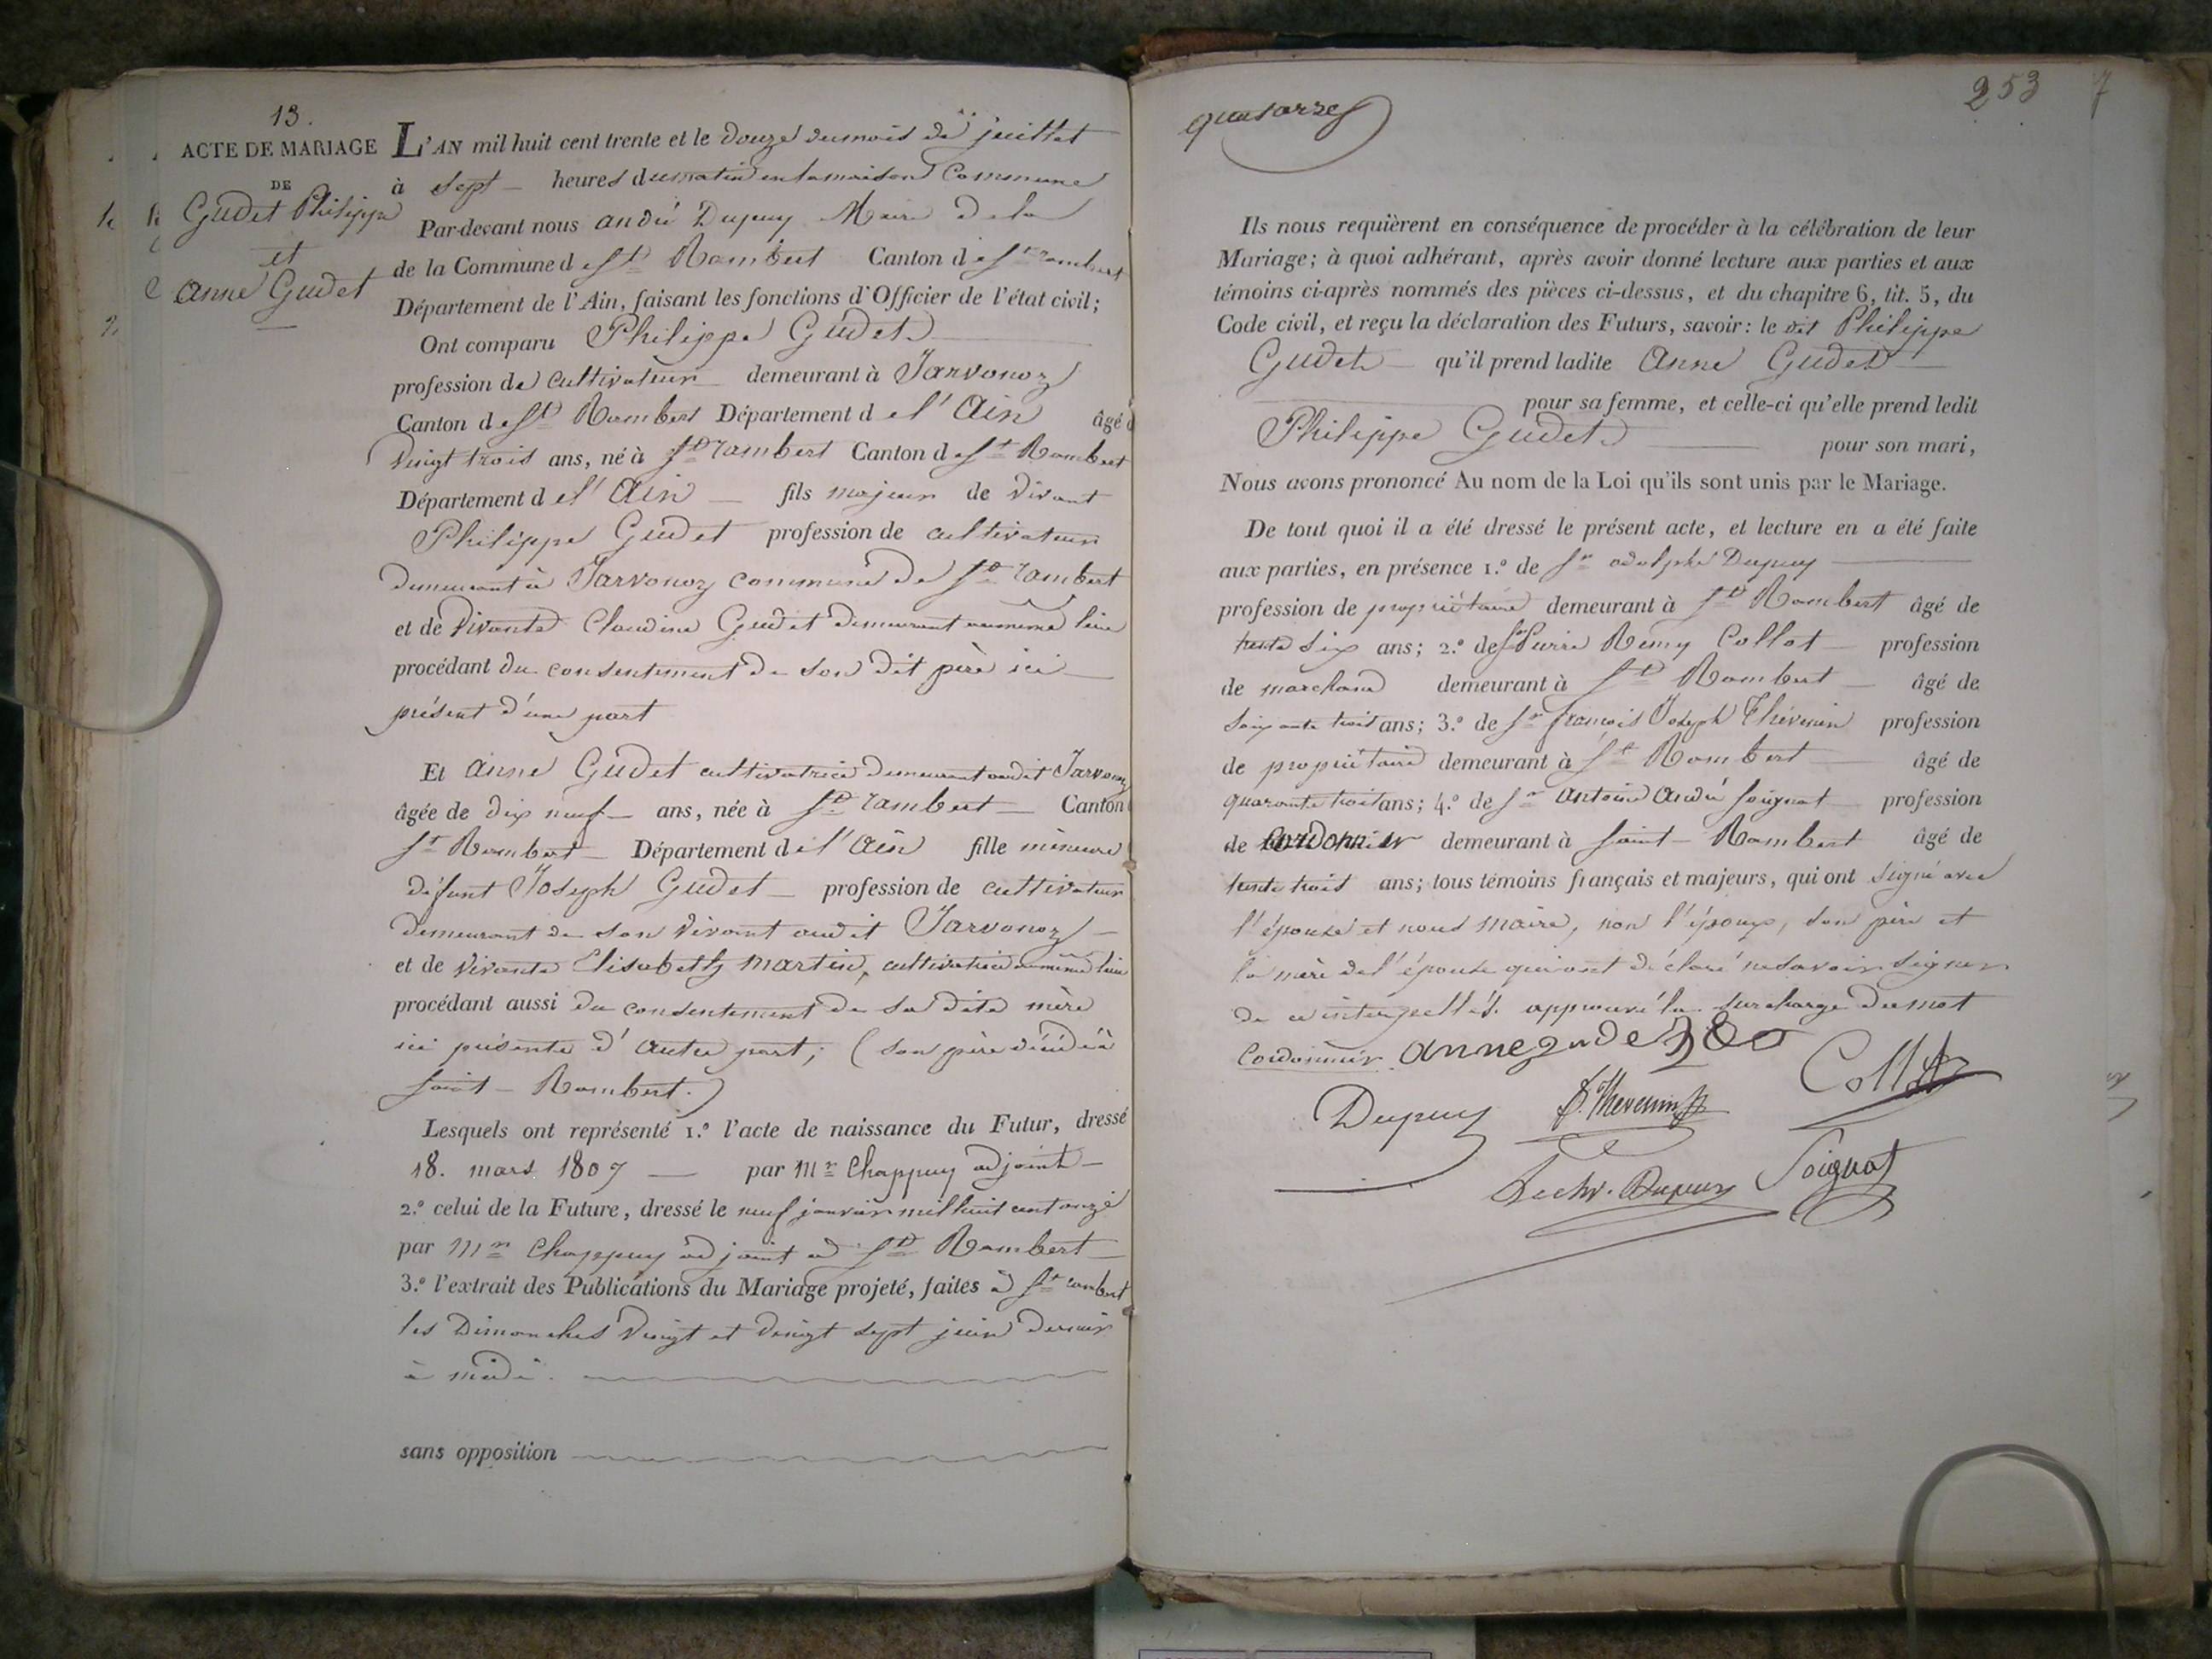 13.
ACTE DE MARIAGE
DE
Gudet Philippe
et
Anne Gudet
L'AN mil huit cent trente et le douze du mois de juillet
à sept heures du matin en la maison Commune
Par-devant nous andré Dupuy Maire de la
de la Commune de St Rambert Canton de St rambert
Département de l'Ain, faisant les fonctions d'Officier de l'état civil;
Ont comparu Philippe Gudet
profession de cultivateur demeurant à Javornoz
Canton de St Rambert Département de l'Ain âgé
Vingt trois ans, né à St rambert Canton de St Rambert
Département de l'Ain fils majeur de vivant
Philippe Gudet profession de cultivateur
demeurant à Javornoz commune de St rambert
et de vivante Claudine Gudet demeurant au même lieu
procédant du consentement de son dit père ici
présent d'une part
Et anne Gudet cultivatrice demeurant audit
âgée de dix neuf ans, née à St rambert Canton
St Rambert Département de l'Ain fille mineure
défunt Joseph Gudet profession de cultivateur
demeurant de son vivant audit Javornoz
et de vivante Elisabeth martin, cultivatrice au même lieu
procédant aussi du consentement de sa dite mère
ici présente d'autre part; (son père décédé à
Saint-Rambert.)
Lesquels ont représenté 1.º l'acte de naissance du Futur, dressé
18. mars 1807 par Mr Chappuy adjoint
2.º celui de la Future, dressé le neuf janvier mil huit cent onze
par Mr Chappuy adjoint à St Rambert
3.º l'extrait des Publications du Mariage projeté, faites à St rambert
les Dimanches vingt et vingt sept juin dernier
à midi.
sans opposition
quatorze
253
7
Ils nous requièrent en conséquence de procéder à la célébration de leur
Mariage; à quoi adhérant, après avoir donné lecture aux parties et aux
témoins ci-après nommés des pièces ci-dessus, et du chapitre 6, tit. 5, du
Code civil, et reçu la déclaration des Futurs, savoir: le dit Philippe
Gudet qu'il prend ladite Anne Gudet
pour sa femme, et celle-ci qu'elle prend ledit
Philippe Gudet pour son mari,
Nous avons prononcé Au nom de la Loi qu'ils sont unis par le Mariage.
De tout quoi il a été dressé le présent acte, et lecture en a été faite
aux parties, en présence 1.º de Sr adolphe Dupuy
profession de propriétaire demeurant à St Rambert âgé de
trente six ans; 2.º de Sr Pierre Remy Collot profession
de marchand demeurant à St Rambert âgé de
soixante trois ans; 3.º de Sr françois Joseph Thévenin profession
de propriétaire demeurant à St Rambert âgé de
quarante trois ans; 4.º de Sr Antoine André Soignat profession
de Cordonnier demeurant à Saint-Rambert âgé de
trente trois ans; tous témoins français et majeurs, qui ont signé avec
l'épouse et nous maire, non l'époux, son père et
la mère de l'épouse qui ont déclaré ne savoir signer
de ce interpellés. approuvé la surcharge du mot
Cordonnier.
Collot
Dupuy
Thevenin
Dupuy
Soignat